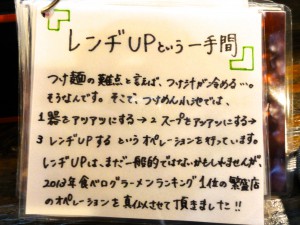 レンヂUPという一手間
つけ麺の難点と言えば、つけ汁が冷める…。
そうなんです。そこで、つけめん小池では、
1 器をアツアツにする→2 スープをアツアツにする→
3 レンヂUPする というオペレーションを行っています。
レンヂUPは、まだ一般的ではないかもしれませんが、
2013年食べログラーメンランキング1位の繁盛店
のオペレーションを真似させて頂きました!!